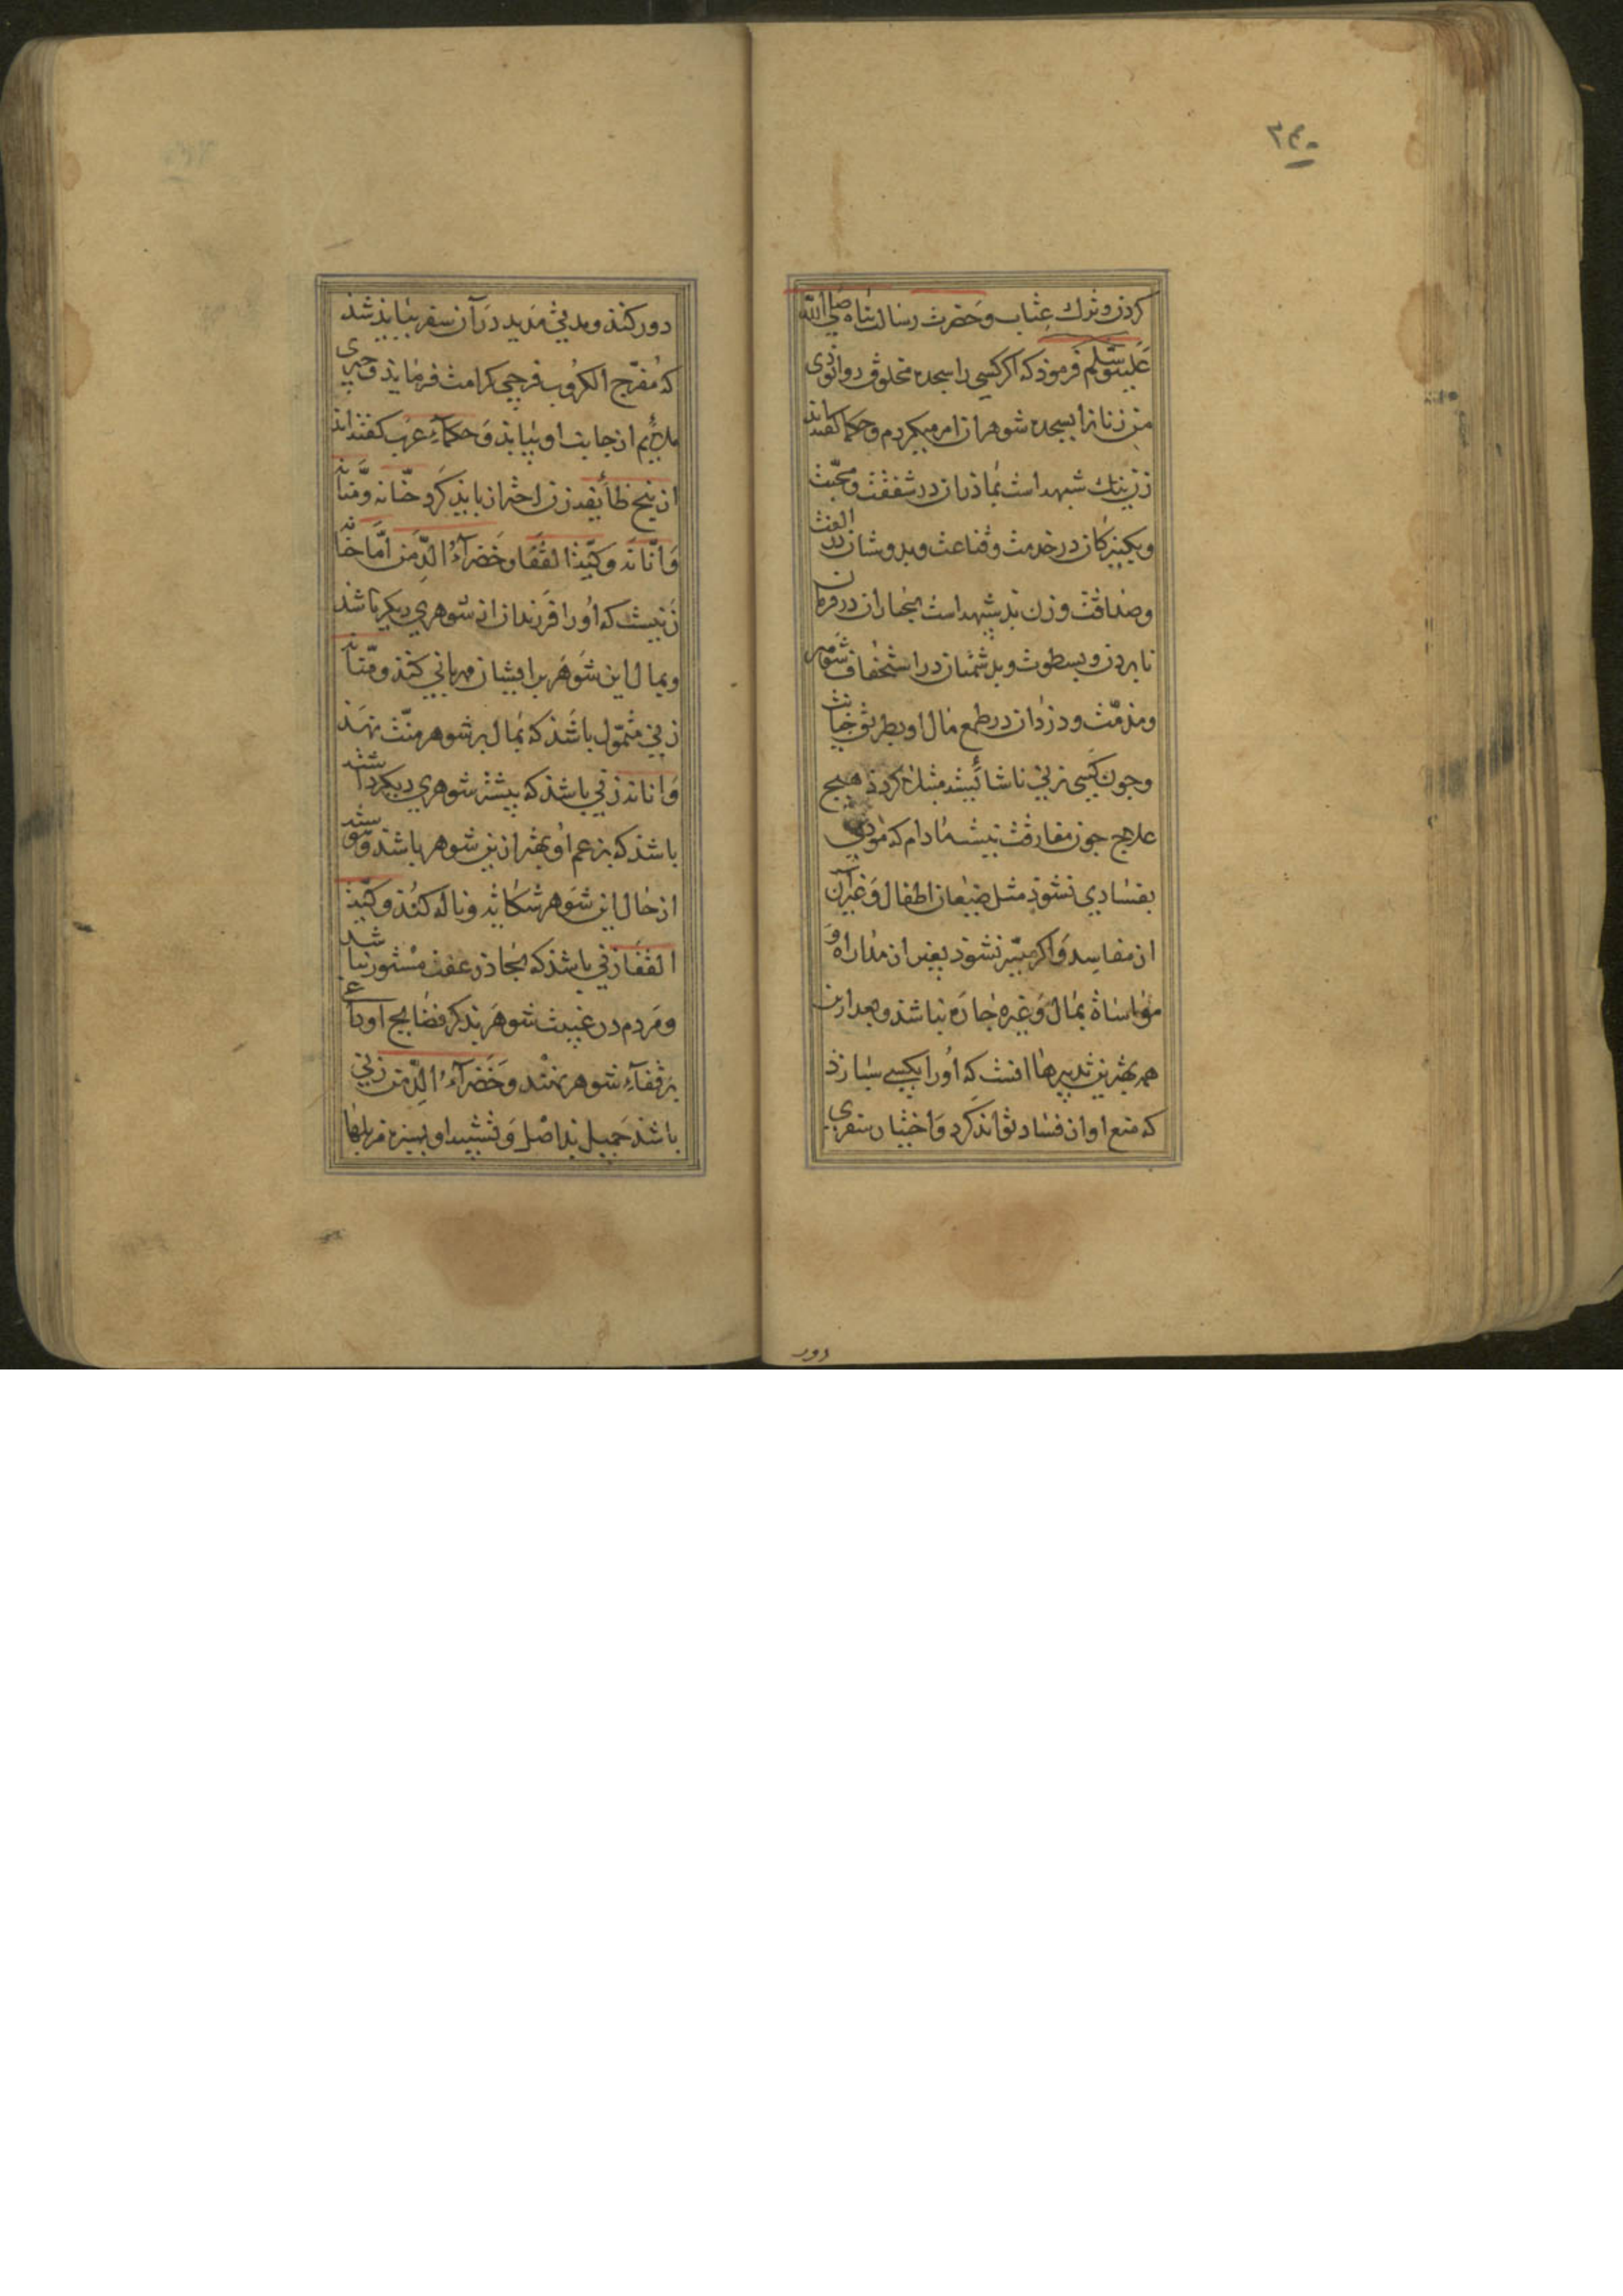 ٢٤٠
كردن وترك عتاب وحضرت رسالت پناه صلى الله
عليه وسلم فرموذ كه اكر كسى را سجده مخلوق روا بودى
من زنانرا بسجده شوهران امر ميكردم وحكما كفته اند
زن نيك شبيه است بماذران در شفقت ومحبت
وبكنيزكان در خدمت وقناعت وبدوستان در الفت
وصداقت وزن بد شبيه است بجباران در فرمان
نابردن وبسطوت وبدشمنان در استخفاف شوهر
ومذمت ودزدان در طمع مال او بطريق خيانت
وجون كسى بزنى ناشائسته مبتلا كردذ هيج
علاج جون مفارقت نيست مادام كه مودى
بفسادى نشوذ مثل ضيعان اطفال وغير آن
از مفاسد واكر ميسر نشوذ بغير از مداراه و
مواساة بمال وغيره جاره نباشذ وبعد ازين
همه بهترين تدبيرها انست كه اورا بكسى سپارذ
كه منع او از فساد تواند كرد واختيار سفرى
دور
دور كنذ وبدتى مديد در آن سفر ببايذ شذ
كه مفرج الكروب فرجى كرامت فرمايذ وچيزى
ملائم از جانب او بيابذ وحكماء عرب كفته اند
از پنج طائفه زن احتراز بايذ كرد حنانه ومنانه
وانانه وكية القفا وخضرآء الدمن اما حنانه
زنيست كه اورا فرزندان از شوهرى ديكر باشذ
وبمال اين شوهر بر ايشان مهربانى كنذ ومنانه
زنى متمول باشذ كه بمال بر شوهر منت نهذ
وانانه زنى باشذ كه پيشتر شوهرى ديكر داشته
باشذ كه بزعم او بهتر ازين شوهر باشذ وپيوسته
از حال اين شوهر شكايت وناله كنذ وكية
القفا زنى باشذ كه بجاذر عفت مستور نباشد
ومردم در غيبت شوهر بذكر فضايح او داغى
بر قفآء شوهر نهند وخضرآء الدمن زنى
باشذ جميل بد اصل وتشبيه او بسبزه مزبلها